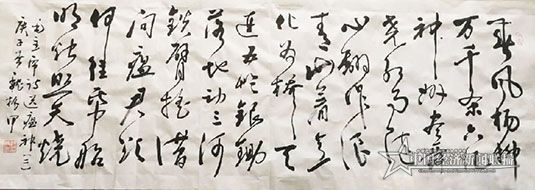 春风杨柳
万千条六亿
神州尽舜
尧红雨随
心翻作浪
青山着意
化为桥天
连五岭银锄
落地动三河
铁臂摇借
问瘟君欲
何往纸船
明烛照天烧
毛主席诗送瘟神(二)
庚子
中国经济新闻联播